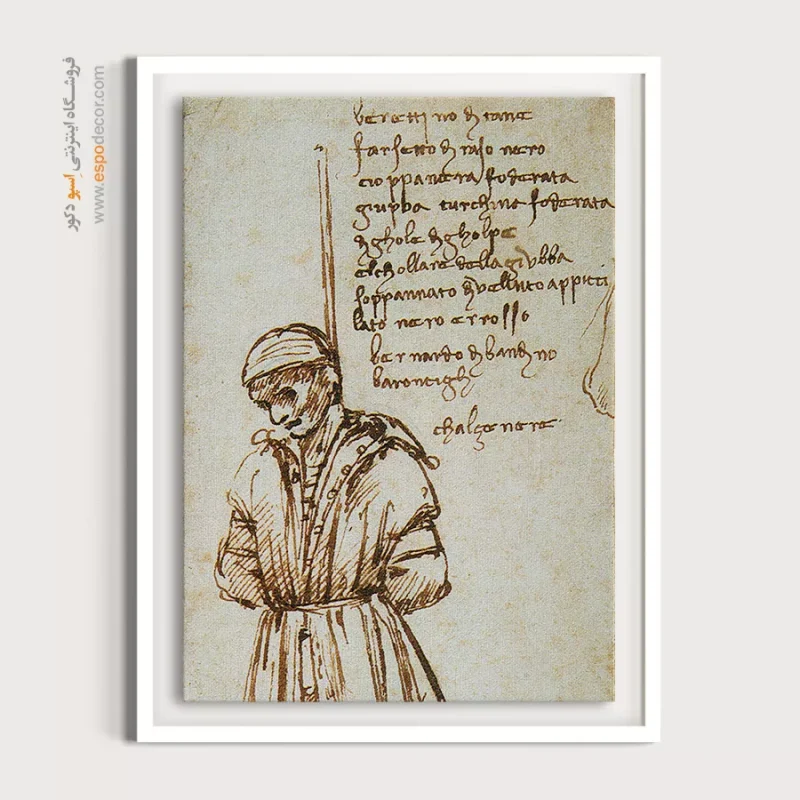 berettino di tane
farsetto di raso nero
cioppa nera foderata
giubba turchina foderata
di ghole di gholpe
el chollare della giubba
soppannato di velluto appicci
lato nero e rosso
bernardo di bandino
baroncigli
chalze nere
فروشگاه اینترنتی اسپو دکور
www.espodecor.com